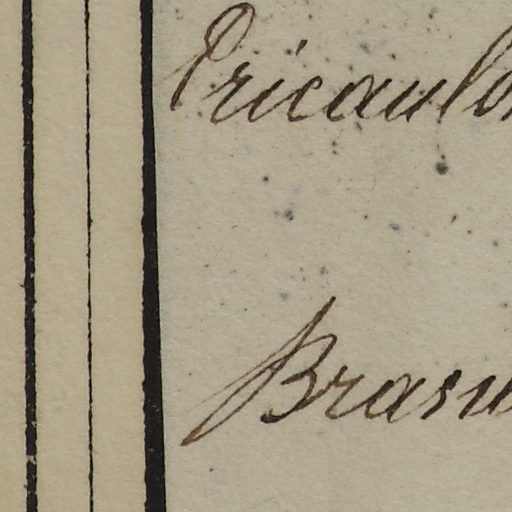 Pricaulo
Brasu